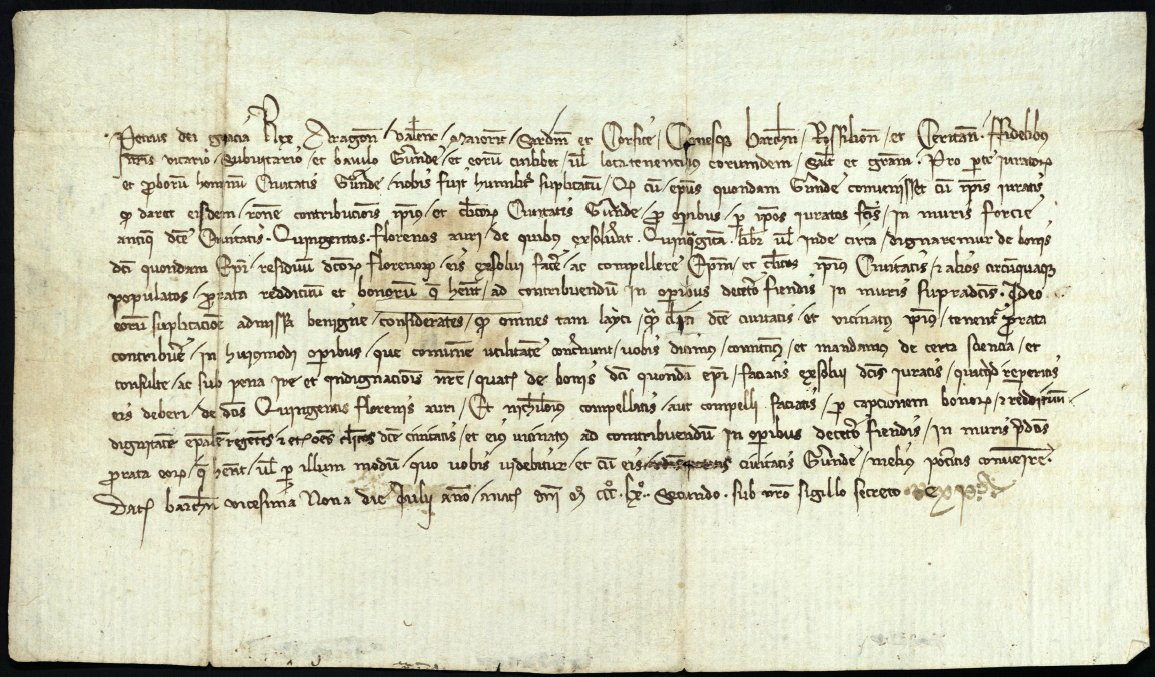 Petrus dei gracia Rex Aragon Valenc Maioric Sardin et Corsice Comesq Barchn Rossilion et Ceritan ffidelibus
nris vicario Subvicario et baiulo Gerunde et eoru cuilibet vel locatenentibus eorumdem Salt et gram Pro parte iuratorum
et proboru hominu Civitatis Gerunde nobis fuit humilit suplicatu Qd cu epus quondam Gerunde convenisset cu ipis iuratis
qd daret eisdem rone contribucionis ipius et clicorum Civitatis Gerunde pro opibus p ipos iuratos fcis in muris forcie
antiq dce Civitatis Quingentos florenos auri de quibus exsolverat Quinquaginta libr vel inde circa dignaremur de bonis
dci quondam Epi residuu dcorum florenorum eis exsolvi facere ac compellere Epm et clicos ipius Civitatis et alios circumquaque
populatos prata reddituum et bonorum q hent ad contribuendum in opibus decetero fiendis in muris supradictis Ideo
eorum suplicacione admissa benigne considerantes qd omnes tam layci qm clici dce civitatis et vicinatus ipius tenentur prata
contribuere in huiusmodi opibus que comune utilitate concernunt vobis dicimus comittimus et mandamus de certa sciencia et
consulte ac sub pena ire et indignacionis nre quat de bonis dci quonda epi faciatis exsolvi dcis iuratis quicquid repperitis
eis deberi de dcis Quingentis florenis auri Et nichilominus compellatis aut compelli faciatis p capcionem bonorum et reddituum
dignitate epale regentes et oes clicos dce civitatis et eius vicinatus ad contribuendum in opibus decetero fiendis in muris pdcis
prata eorum q hent vel p illum modum quo vobis videbitur et cu eis civitatis Gerunde melius poteritis convenire
Dat barchn vicesima Nona die Iulii anno a nat dni M CCC LX Secundo sub nro sigillo secreto Rex P